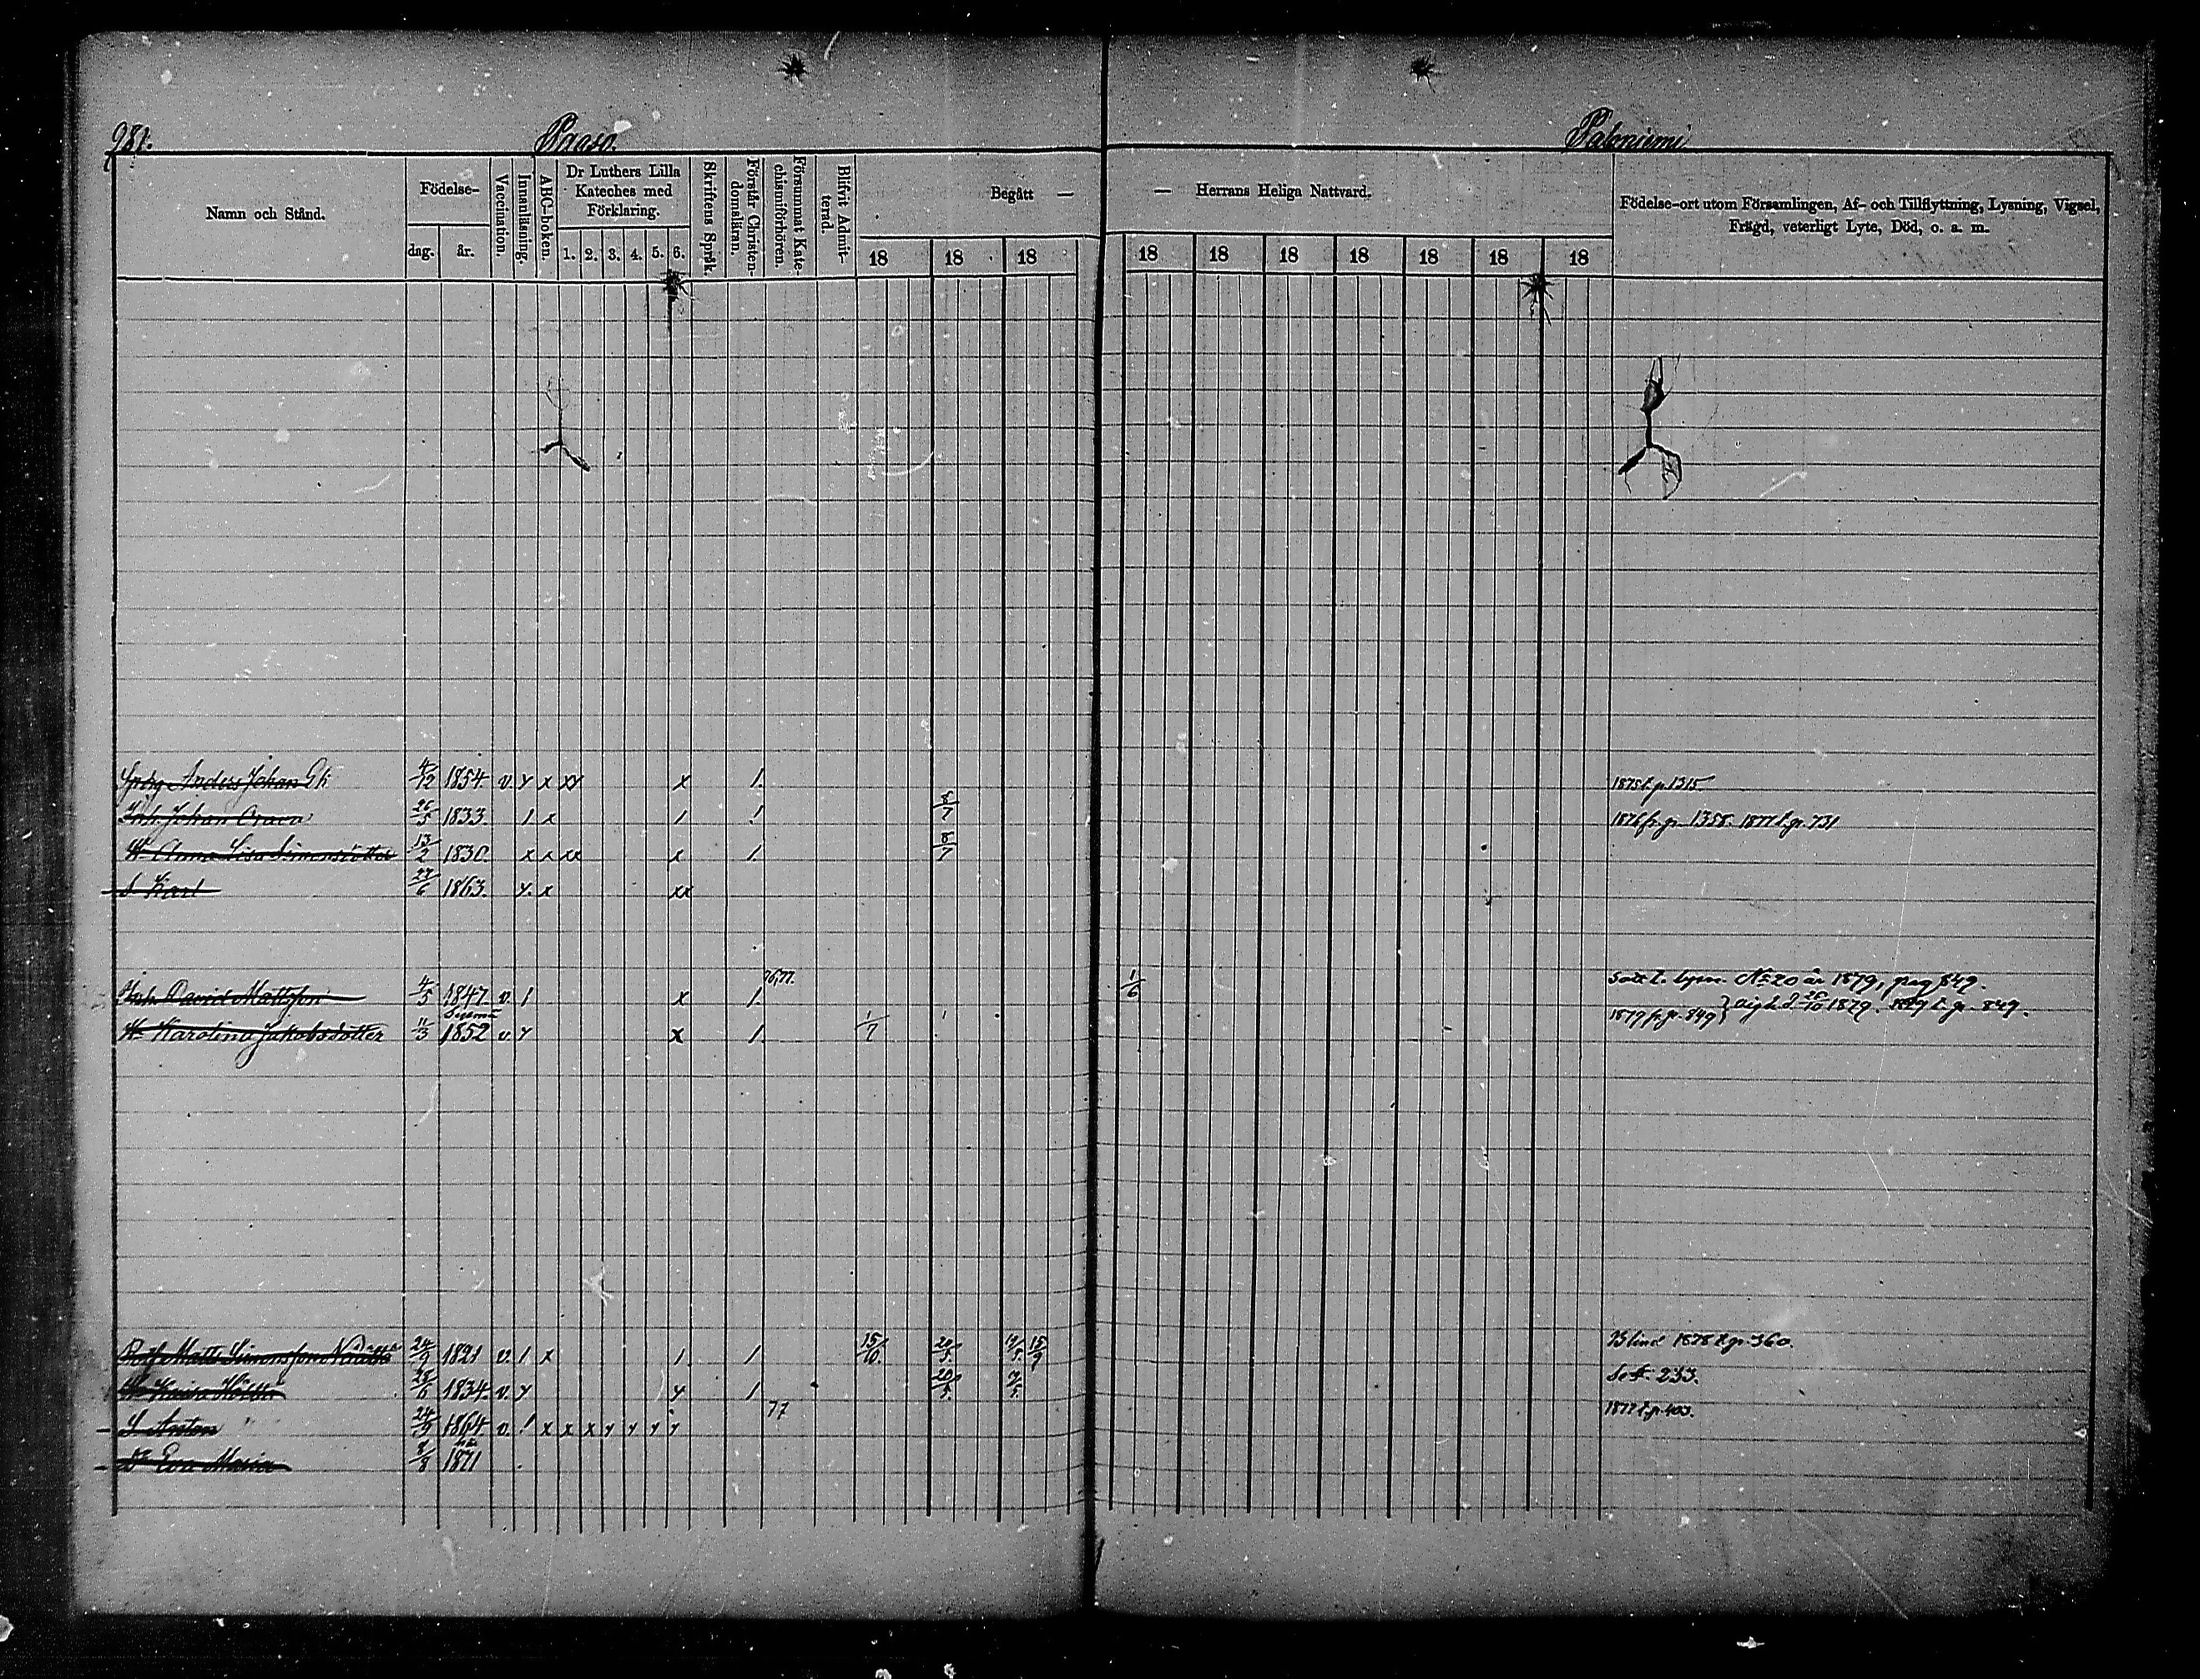 281. Paaso. Paloniemi
Namn och Stånd. Födelse- dag. år. Vaccination. Innanläsning. ABC-boken. Dr Luthers Lilla Kateches med Förklaring. 1. 2. 3. 4. 5. 6. Skriftens Språk. Förstår Christendomsläran. Försummat Katechismiförhören. Blifvit Admitterad. Begått — — Herrans Heliga Nattvard. 18 18 18 18 18 18 18 18 18 18 Födelse-ort utom Församlingen, Af- och Tillflyttning, Lysning, Vigsel, Frägd, veterligt Lyte, Död, o. a. m.
Anders Johan 4/12 1854. v. y x xx x 1. 1875 t. p. 1315
Inh. Johan 26/5 1833. 1 x 1 1 8/7 1876 fr. p. 1358. 1877 t. p. 731
H. Anna Lisa Simonsdotter 13/2 1830. x x xx x 1. 8/7
S. Karl 27/6 1863. y. x xx
Inh. David Mattsson 4/5 1847. v. 1 x 1. 76,77. 1/6 Satt t. lysn. No 20 år 1879, pag 849.
H. Karolina Jakobsdotter 11/3 1852 v. y x 1. 1/7 1879 fr. p. 849 } vigd d 26/10 1879. 1879 t. p. 849.
Matts Simonsson 24/9 1821 v. 1 x 1. 1. 15/10. 20/5. 15/9 Blind 1878 t. p. 360.
H. Kaisa 28/6 1834. v. y y 1 20/5. Se p. 233.
S. Anton 24/9 1864 v. 1 x x x y y y y 77 1877 t. p. 403.
Dr Eva Maria 8/8 1871